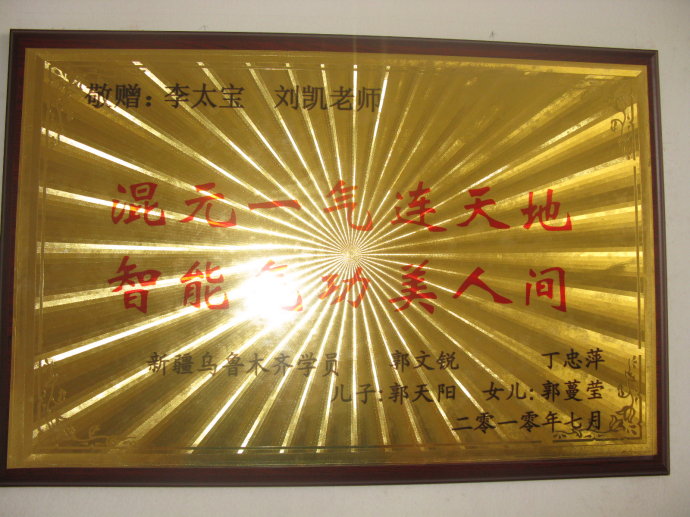 敬赠：李太宝 刘凯老师
混元一气连天地
智能气功美人间
新疆乌鲁木齐学员 郭文锐 丁忠萍
儿子：郭天阳 女儿：郭蔓莹
二零一零年七月